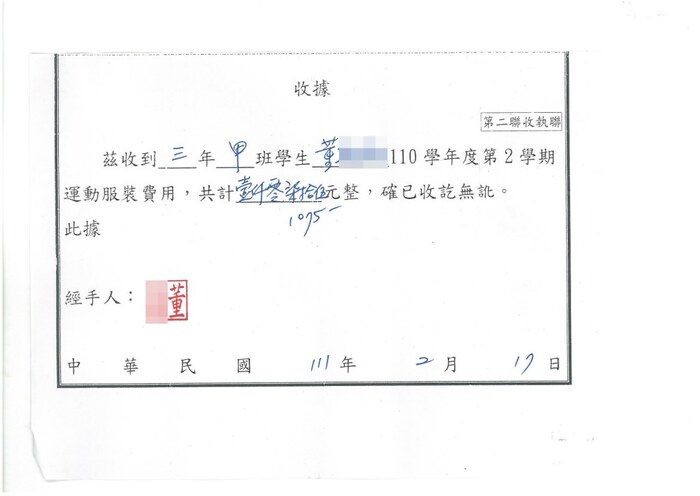 收據
第二聯收執聯
茲收到三年甲班學生董110學年度第2學期
運動服裝費用，共計壹仟零柒拾伍元整，確已收訖無訛。
1075
此據
經手人：董
中華民國111年2月17日